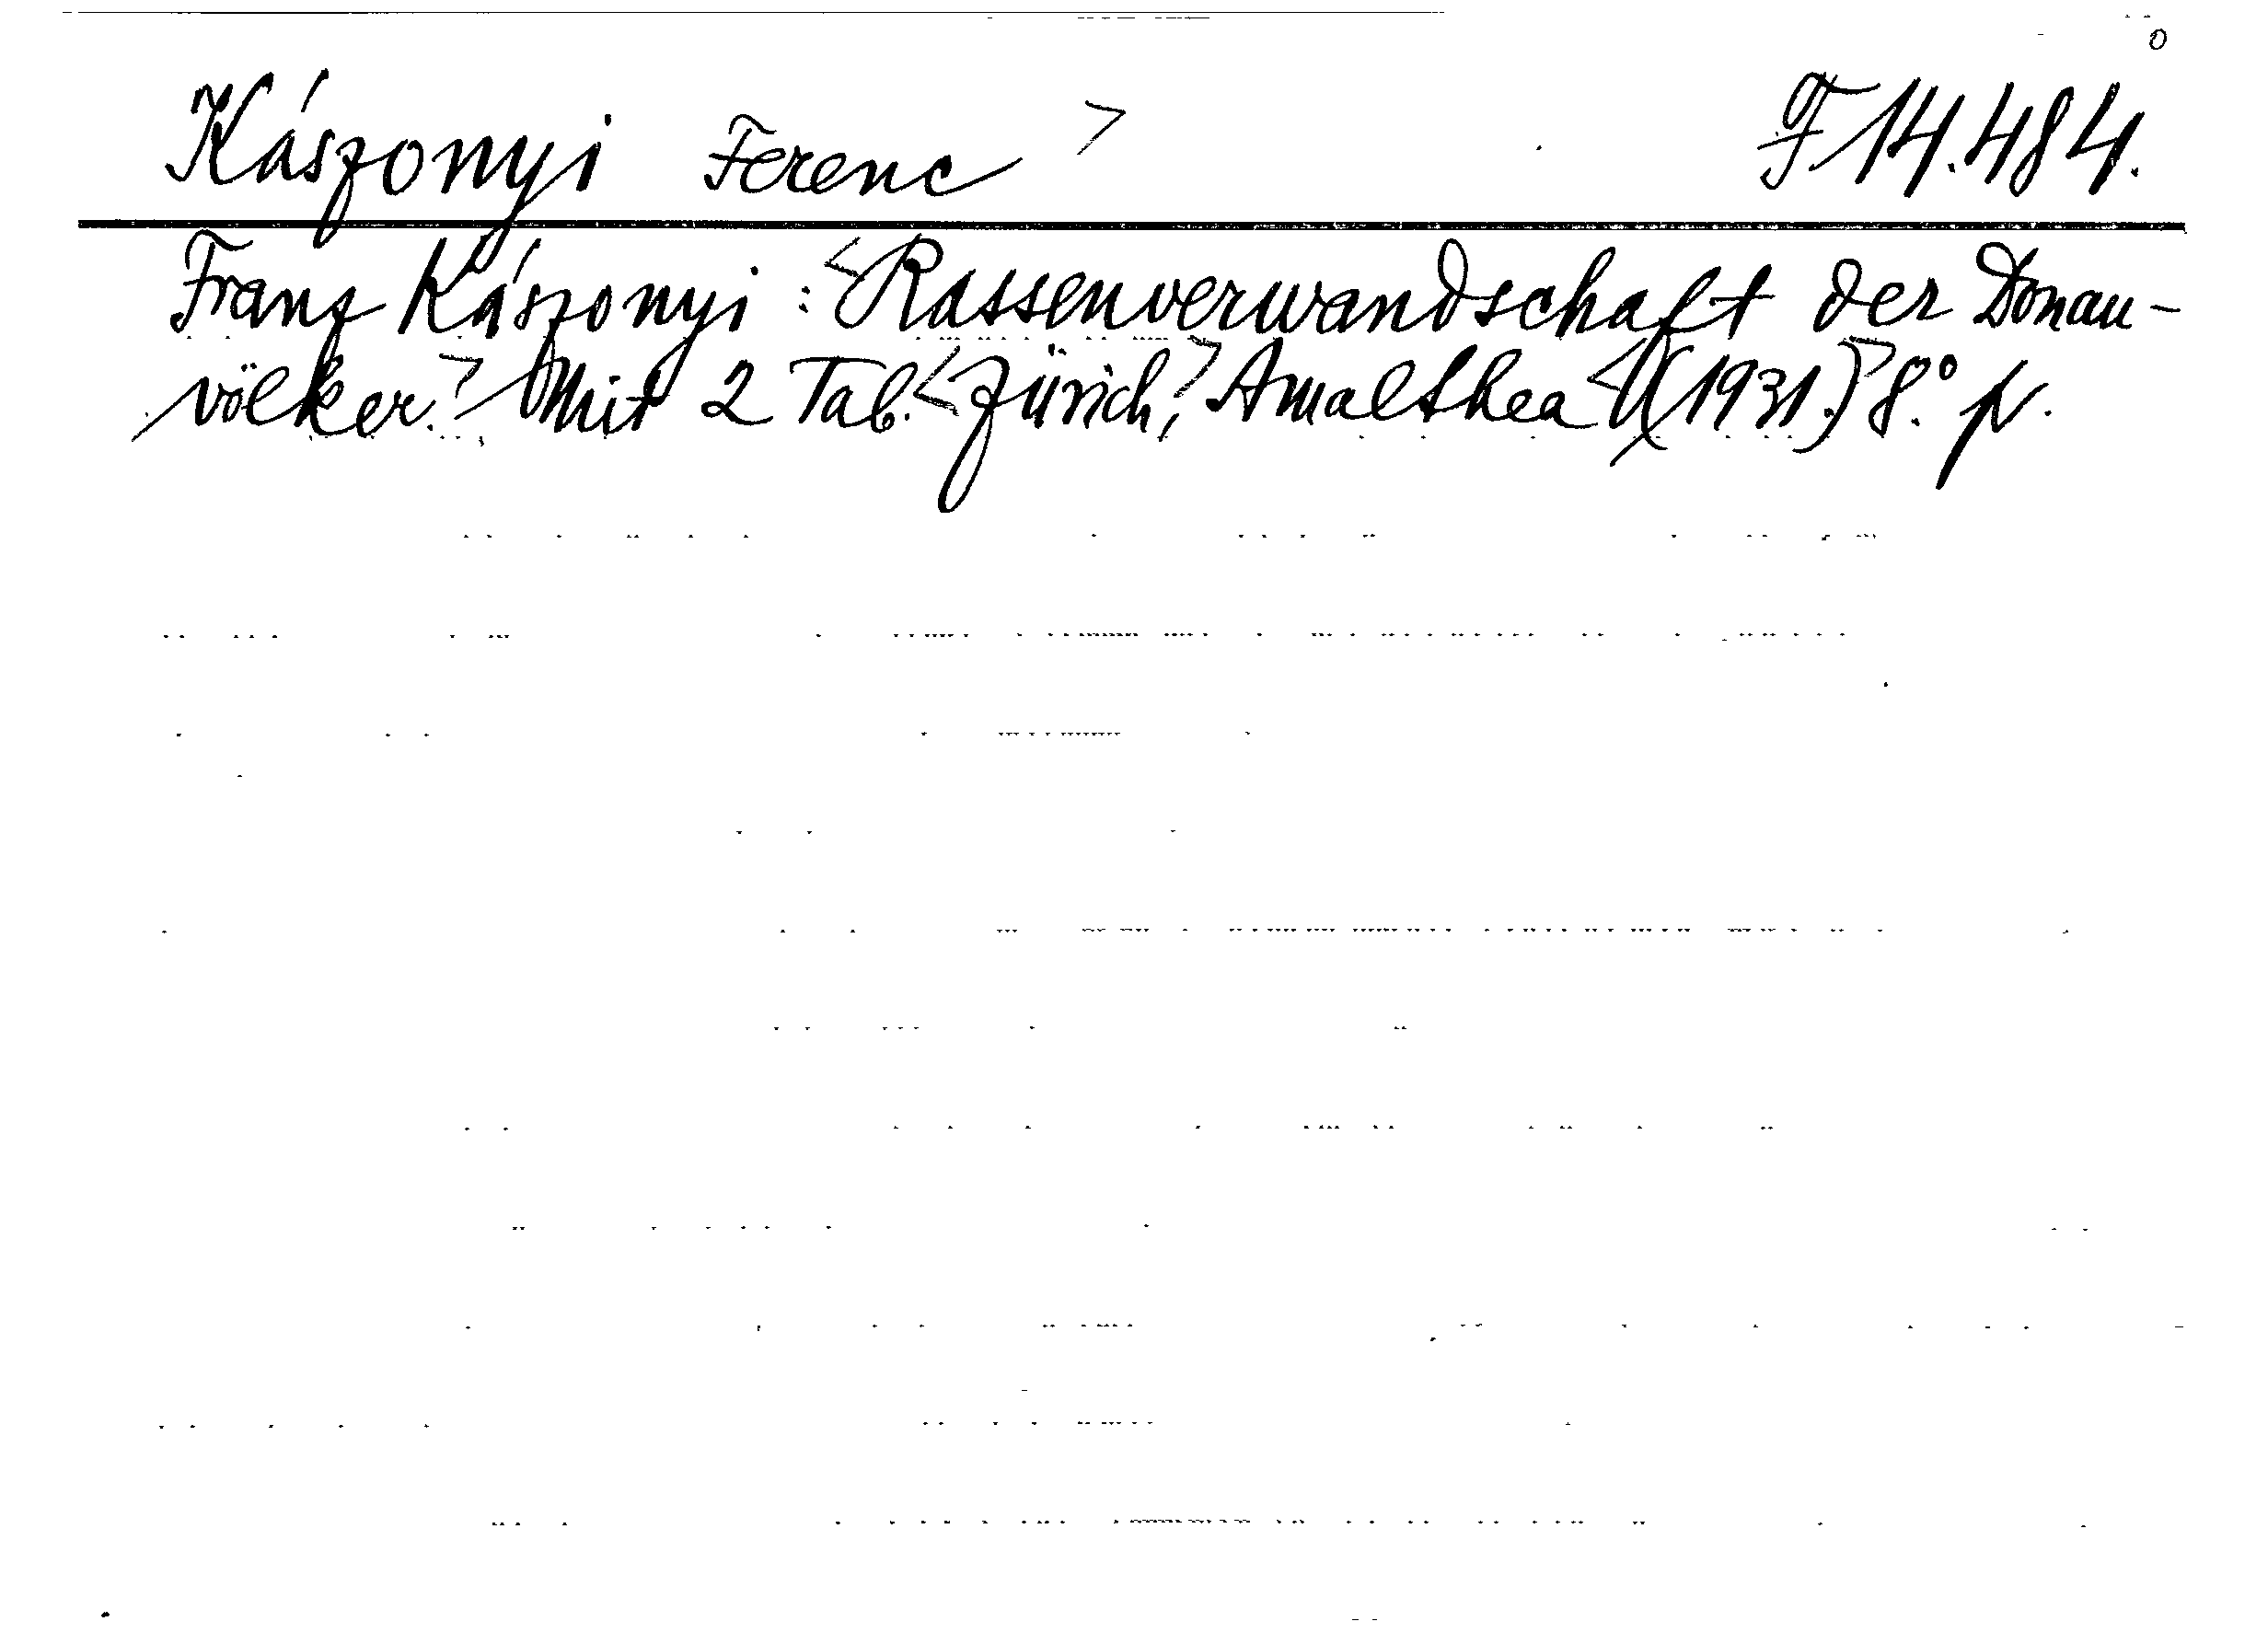 Kászonyi Ferenc > F 14.484.
Franz Kászonyi: <Rassenverwandschaft der Donau-
völker.> Mit 2 Tab. <Zürich,> Amalthea <(1931.)> 8.°